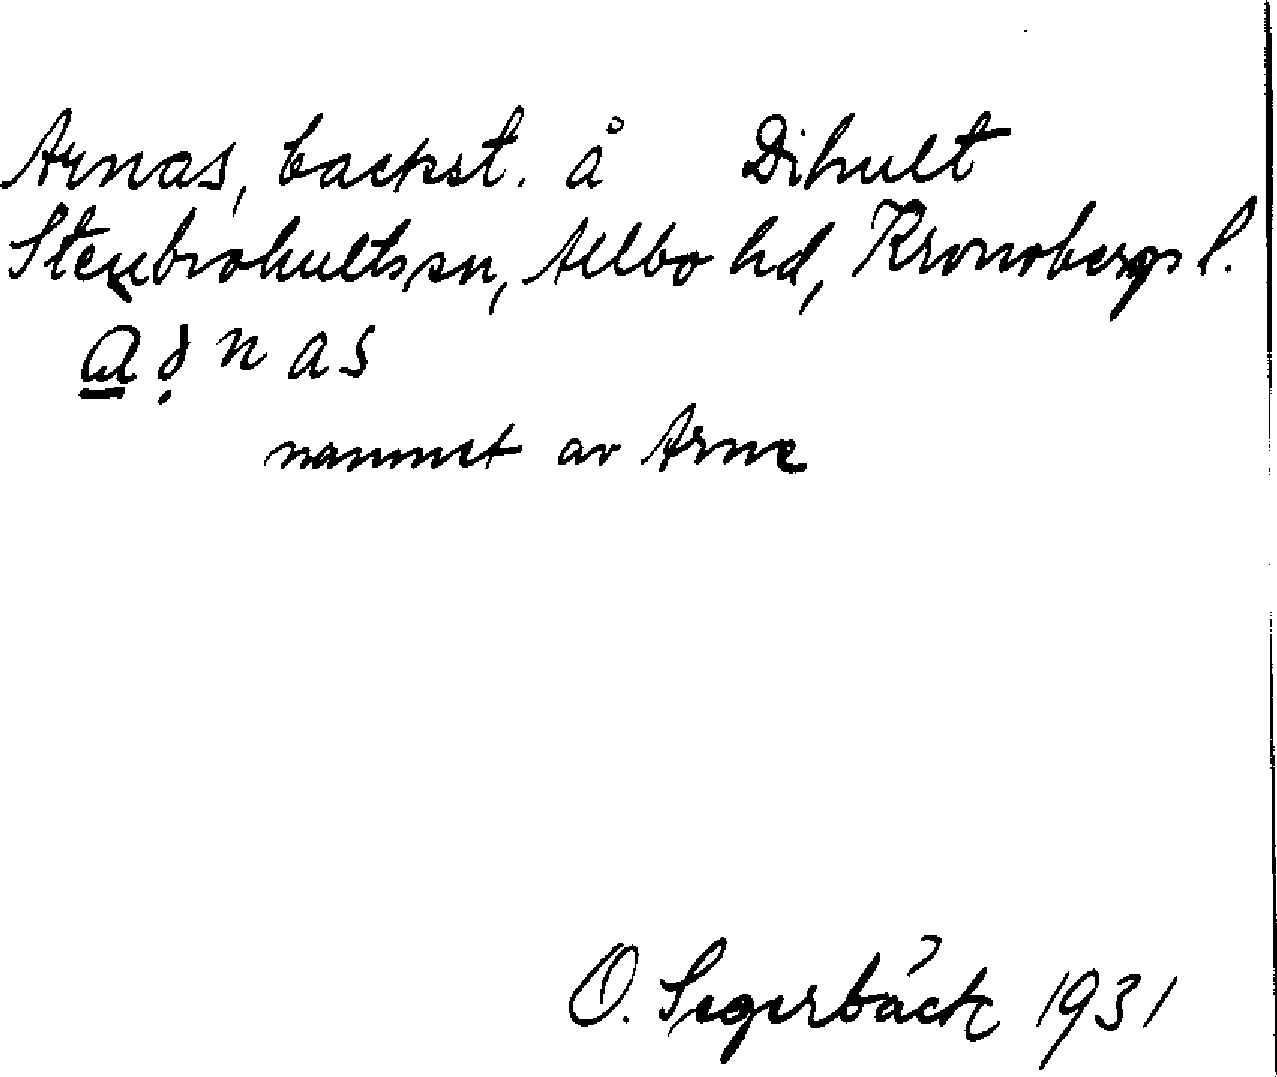 Arnas, backst. å Dihult
Stenbrohultssn, Allbo hd, Kronobergs l.
a d n a s
namnet av Arne
O. Segerbäck 1931